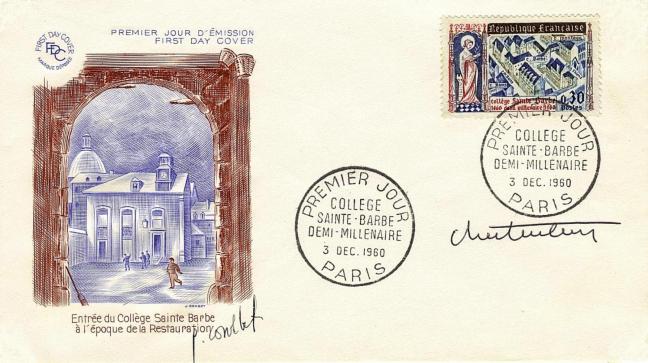 FIRST DAY COVER
FDC
MARQUE DÉPOSÉE
PREMIER JOUR D'ÉMISSION
FIRST DAY COVER
République Française
collège Sainte Barbe
1460
0,30
Postes
PREMIER JOUR
COLLEGE
SAINTE-BARBE
DEMI-MILLENAIRE
3 DEC. 1960
PARIS
PREMIER JOUR
COLLEGE
SAINTE-BARBE
DEMI-MILLENAIRE
3 DEC. 1960
PARIS
Entrée du Collège Sainte Barbe
à l'époque de la Restauration